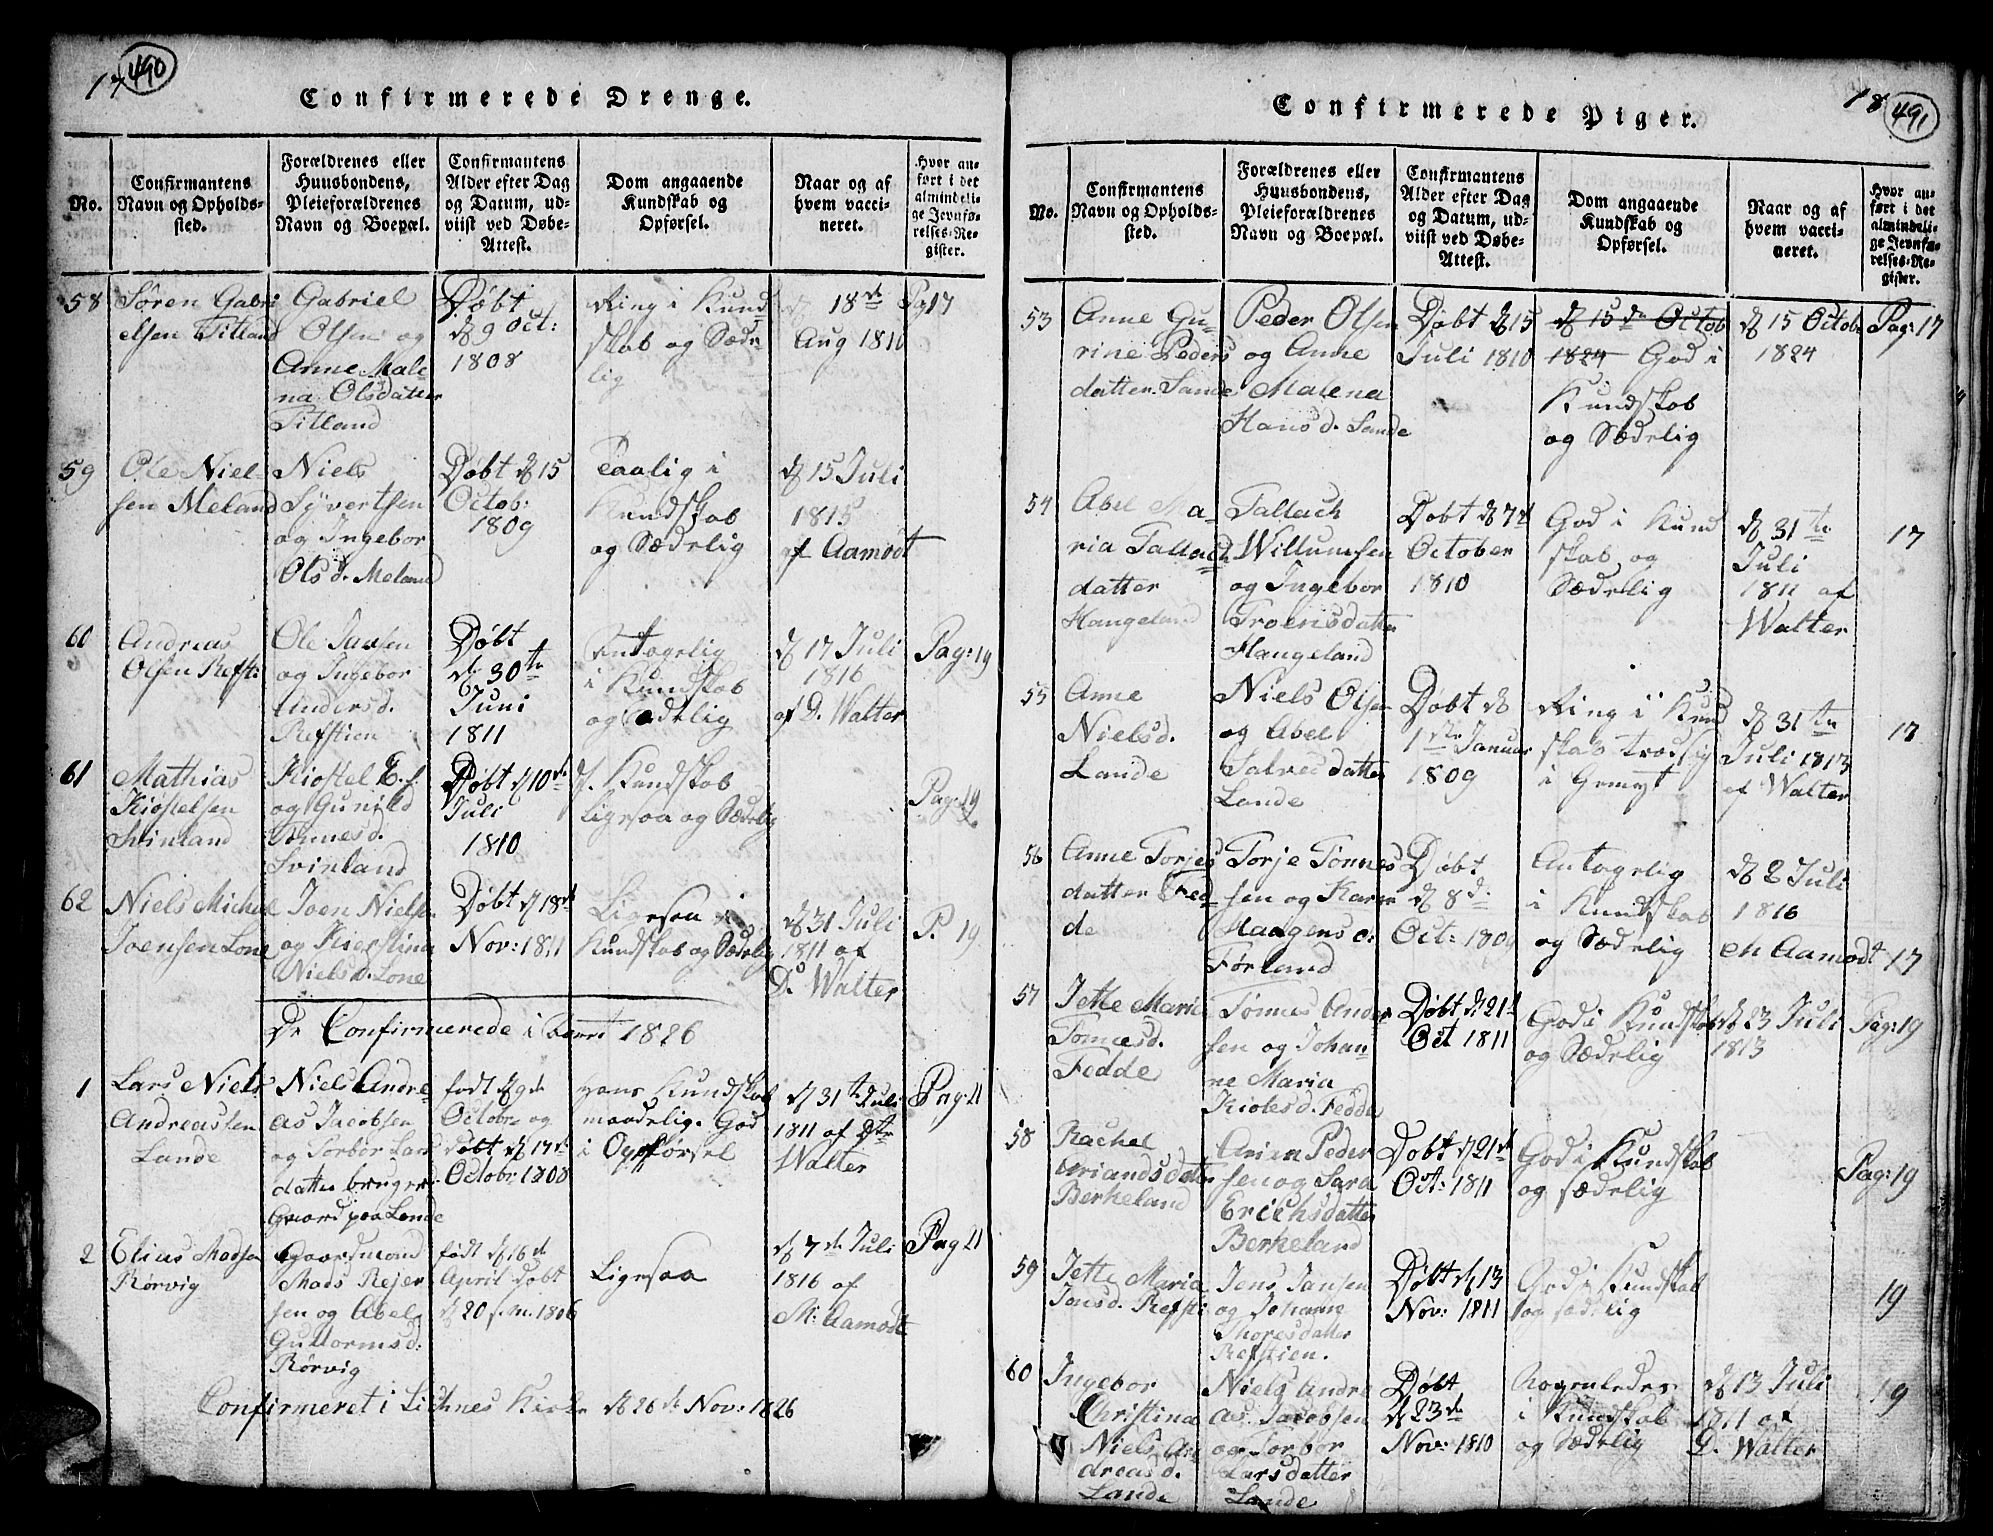 17 490
Confirmerede Drenge.
No.
Confirmantens
Navn og Opholds-
sted.
Forældrenes eller
Huusbondens,
Pleieforældrenes
Navn og Boepæl.
Confirmantens
Alder efter Dag
og Datum, ud-
viist ved Døbe-
Attest.
Dom angaaende
Kundskab og
Opførsel.
Naar og af
hvem vacci-
neret.
Hvor an-
ført i det
almindeli-
ge Jevnfø-
relses-Re-
gister.
58
Søren Gabri
elsen Titland
Gabriel
Olsen og
Anne Male
na Olsdatter
Titland
Døbt
d 9 Oct:
1808
Ring i Kund
skab og Sæde
lig
d 18de
Aug 1810
Pag 17
59
Ole Niel-
sen Meland
Niels
Syvertsen
og Ingebor
Ols d. Meland
Døbt d 15
Octob:
1809
Taalig i
Kundskab
og Sædelig
d 15 Juli
1815
af Aamodt
60
Andreas
Olsen Refsti:
Ole Jansen
og Ingebor
Anders d.
Refstien
Døbt
d. 30te
Juni
1811
Antagelig
i Kundskab
og Sædelig
d 17 Juli
1816
af D. Walter
Pag: 19
61
Mathias
Kiøstelsen
Svinland
Kiøstel E. s.
og Gunild
Tønnes d.
Svinland
Døbt d 10de
Juli
1810
I Kundskab
Ligesaa og Sædelig
Pag: 19
62
Niels Michel
Joensen Lone
Joen Niels
og Kierstina
Niels d. Lone
Døbt d 18de
Nov: 1811
Ligesaa i
Kundskab og Sædelig
d 31 Juli
1811 af
D. Walter
P. 19
De Confirmerede i Aaret 1826
1
Lars Niels
Andreassen
Lande
Niels Andre
as Jacobsen
og Torbor Lars
datter bruger
Gaard paa Lande
født d 9de
Octobr og
døbt d 17de
Octobr 1808
hans Kundskab
maadelig. God
i Opførsel
d 31te Juli
1811 af Dr
Walter
Pag 21
2
Elias Madsen
Rørvig
Gaardmand
Mads Rejer
sen og Abel
Guttorms d:
Rørvig
født d 16de
April døbt
d 20 s. m. 1806
Ligesaa
d 7de Juli
1816 af
M: Aamodt
Pag 21
Confirmeret i Lichnes Kirke d 26de Nov: 1826
18 491
Confirmerede Piger.
No.
Confirmantens
Navn og Opholds-
sted.
Forældrenes eller
Huusbondens,
Pleieforældrenes
Navn og Boepæl.
Confirmantens
Alder efter Dag
og Datum, ud-
viist ved Døbe-
Attest.
Dom angaaende
Kundskab og
Opførsel.
Naar og af
hvem vacci-
neret.
Hvor an-
ført i det
almindeli-
ge Jevnfø-
relses-Re-
gister.
53
Anne Gu-
rine Peders
datter Sande
Peder Olsen
og Anne
Malena
Hans d. Sande
Døbt d 15
Juli 1810
d 15de Octob
1824 God i
Kundskab
og Sædelig
d 15 Octobr
1824
Pag: 17
54
Abel Ma-
ria Tallach
datter
Haugeland
Tallach
Willumsen
og Ingebor
Troensdatter
Haugeland
Døbt d 7d
October
1810
God i Kund
skab og
Sædelig
d 31te
Juli
1811 af
Walter
17
55
Anne
Niels d.
Lande
Niels Olsen
og Abel
Salves datter
Lande
Døbt d
1ste Januar
1809
Ring i Kund
skab trodsig
i Gemyt
d 31te
Juli 1813
af Walter
17
56
Anne Torjes
datter Fed
de
Torje Tønnes
sen og Karen
Haagens d:
Førland
Døbt
d 8d
Oct: 1809
Antagelig
i Kundskab
og Sædelig
d 2 Juli
1816
M Aamodt
17
57
Jette Maria
Tønnes d.
Fedde
Tønnes Ander
sen og Johan
ne Maria
Kiøtes d. Fedde
Døbt d 21d
Oct 1811
God i Kundskab
og Sædelig
d 23 Juli
1813
Pag: 19
58
Rachel
Ariandsdatter
Berkeland
Arian Peder
sen og Sara
Erichsdatter
Berkeland
Døbt d 21d
Oct: 1811
God i Kundskab
og sædelig
Pag: 19
59
Jette Maria
Jens d. Refsti
Jens Jansen
og Johanne
Thoresdatter
Refstien.
Døbt d 13
Nov: 1811
God i Kundskab
og sædelig
19
60
Ingebor
Christina
Niels An
dreas d.
Lande
Niels Andre
as Jacobsen
og Torbor
Larsdatter
Lande
Døbt
d 23de
Nov: 1810
Nogenledes
i Kundskab
og Sædelig
d 13 Juli
1811 af
D. Walter
19